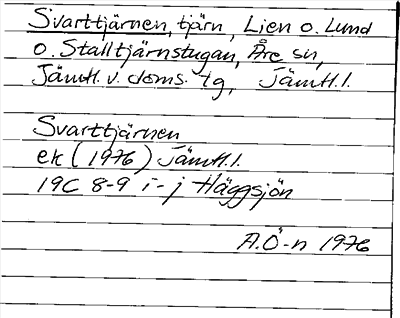 Svarttjärnen, tjärn, Lien o. Lund
o. Stalltjärnstugan, Åre sn,
Jämtl. v. doms. lg, Jämtl. l.
Svarttjärnen
ek (1976) Jämtl. l.
19C 8-9 i-j Häggsjön
A.Ö-n 1976